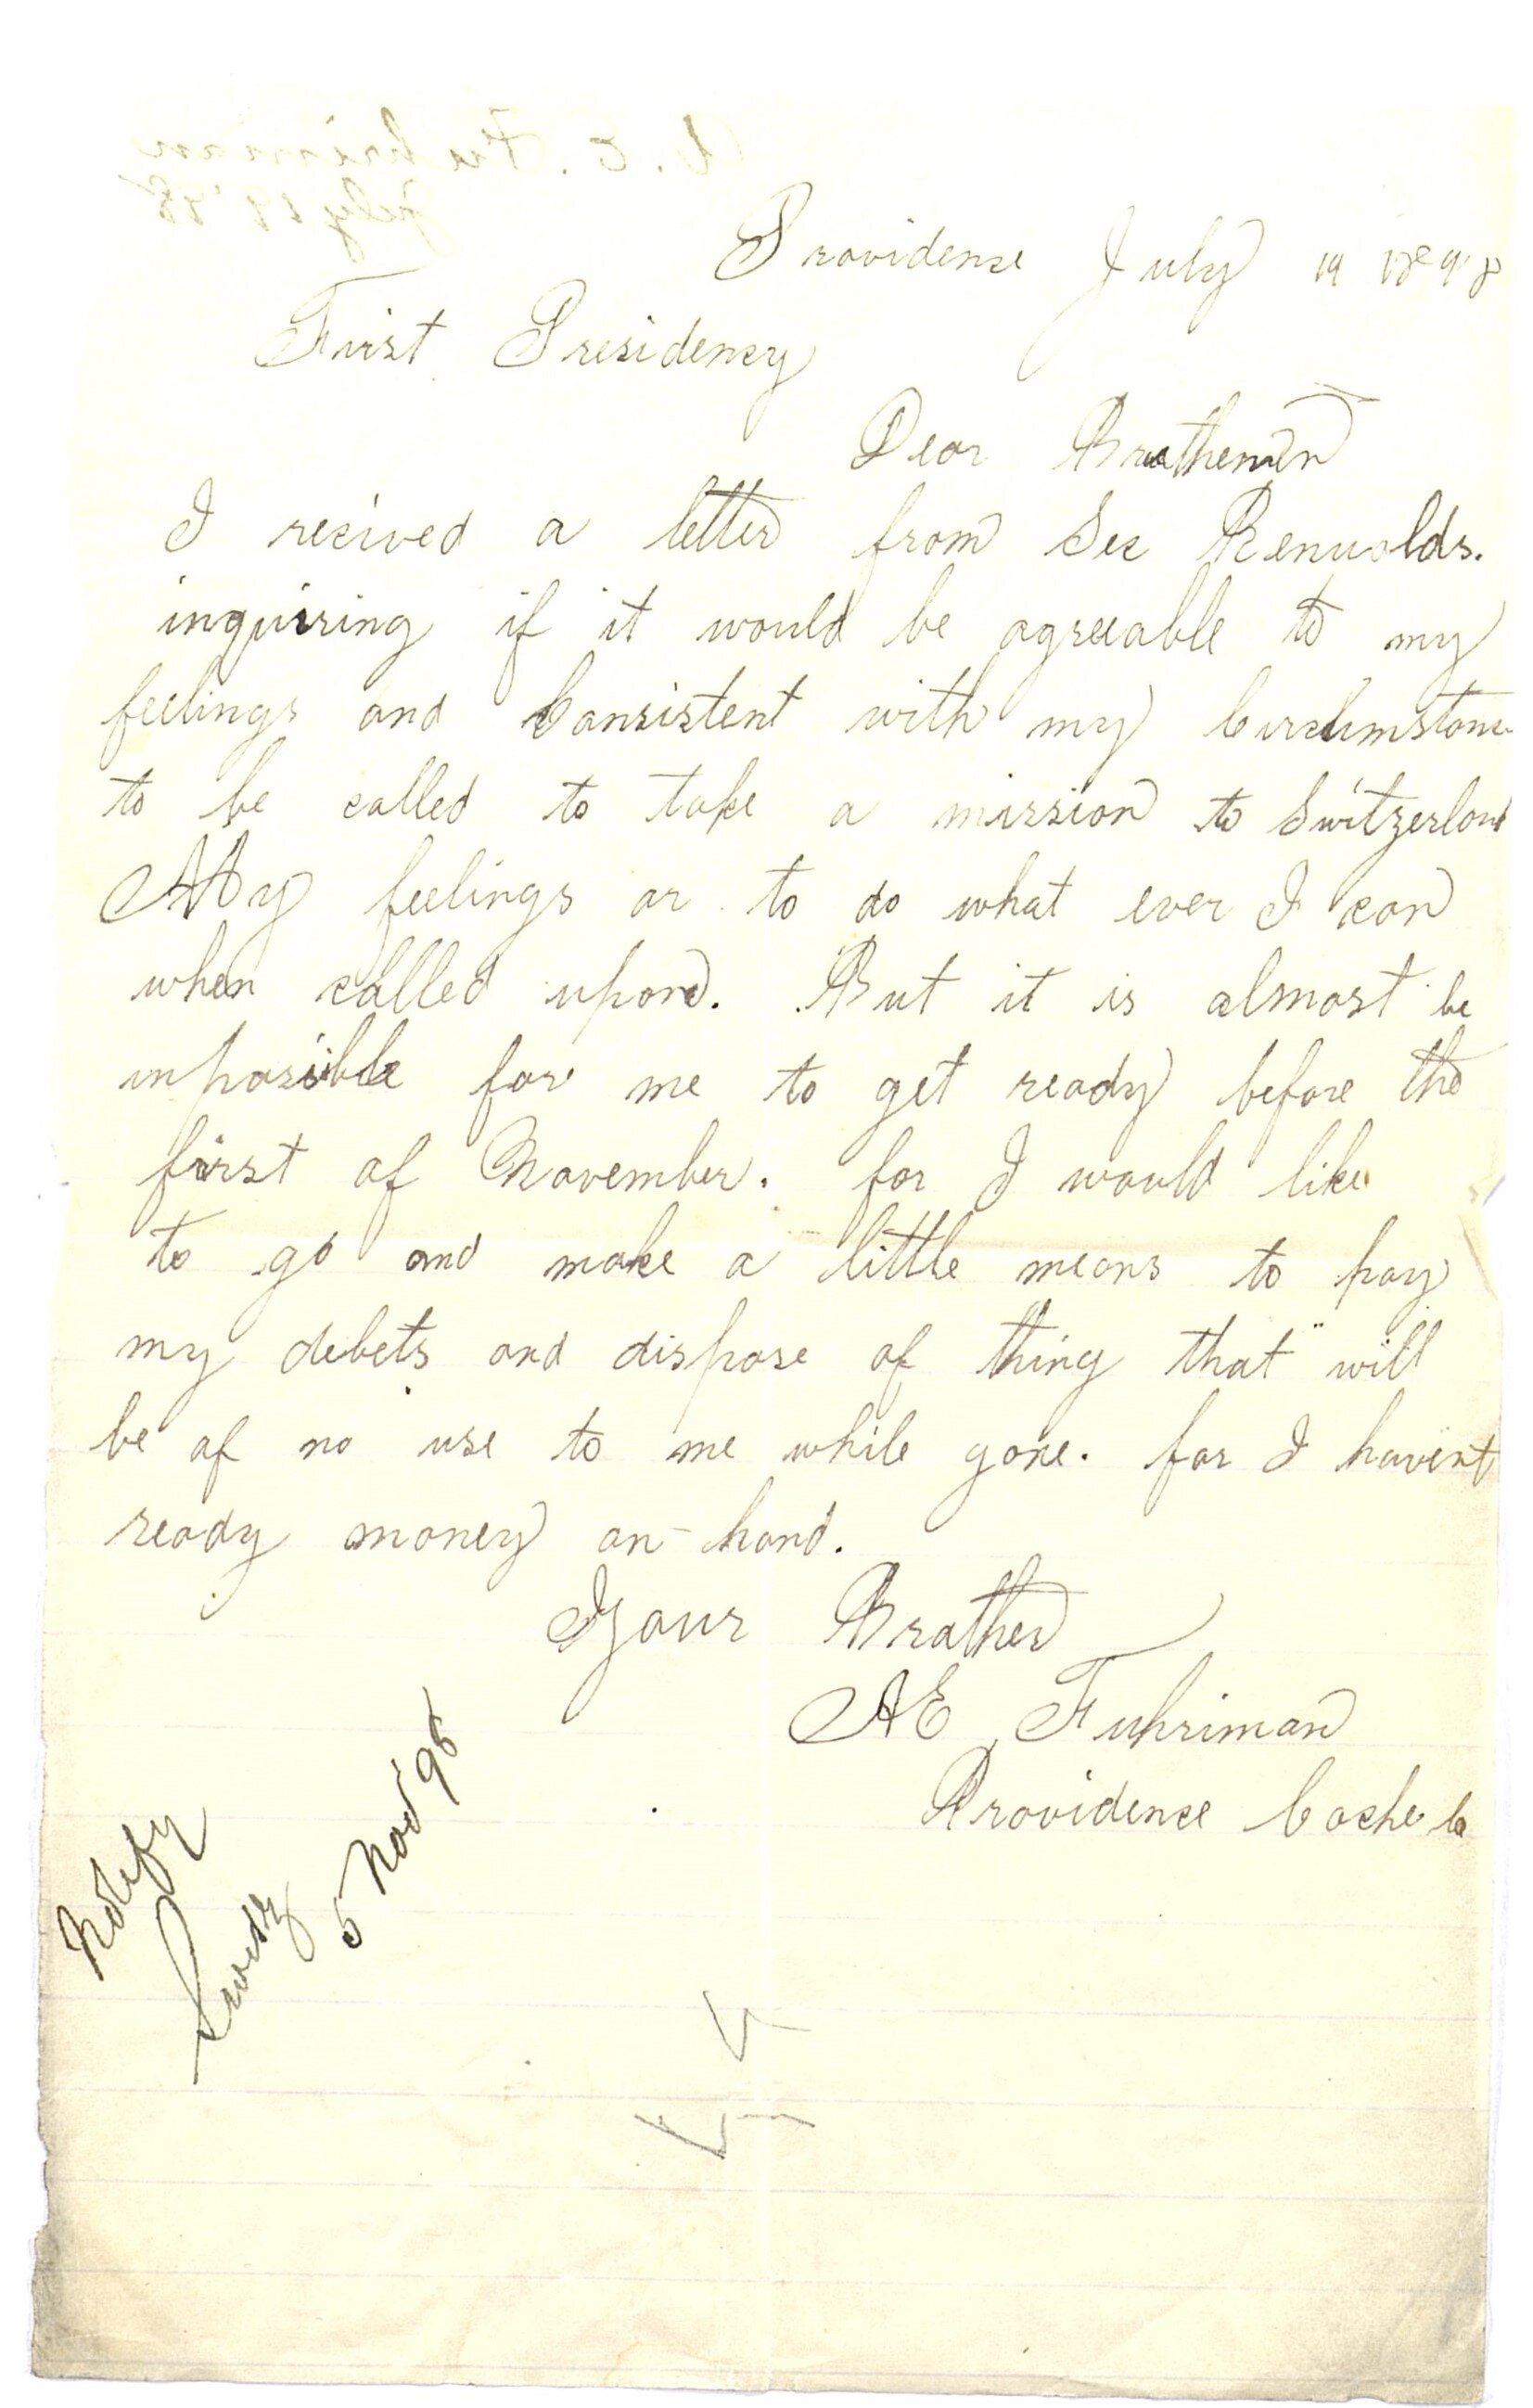 A. E. Fuhriman
July 19 '98
Providense July 19 1898
First Presidency
Dear Bratheren
I recived a letter from Sec Renuolds.
inquiring if it would be agreeable to my
feelings and Consistent with my Circumstanc
to be called to take a mission to Switzerland
My feelings ar to do what ever I can
when called upon. But it is almost be
inpossible for me to get ready before the
first of November. for I would like
to go and make a little means to pay
my debets and dispose of thing that will
be of no use to me while gone. for I havent
ready money on-hand.
Your Brother
AE Fuhriman
Providence Cache Co
Notify
5 Nov '98